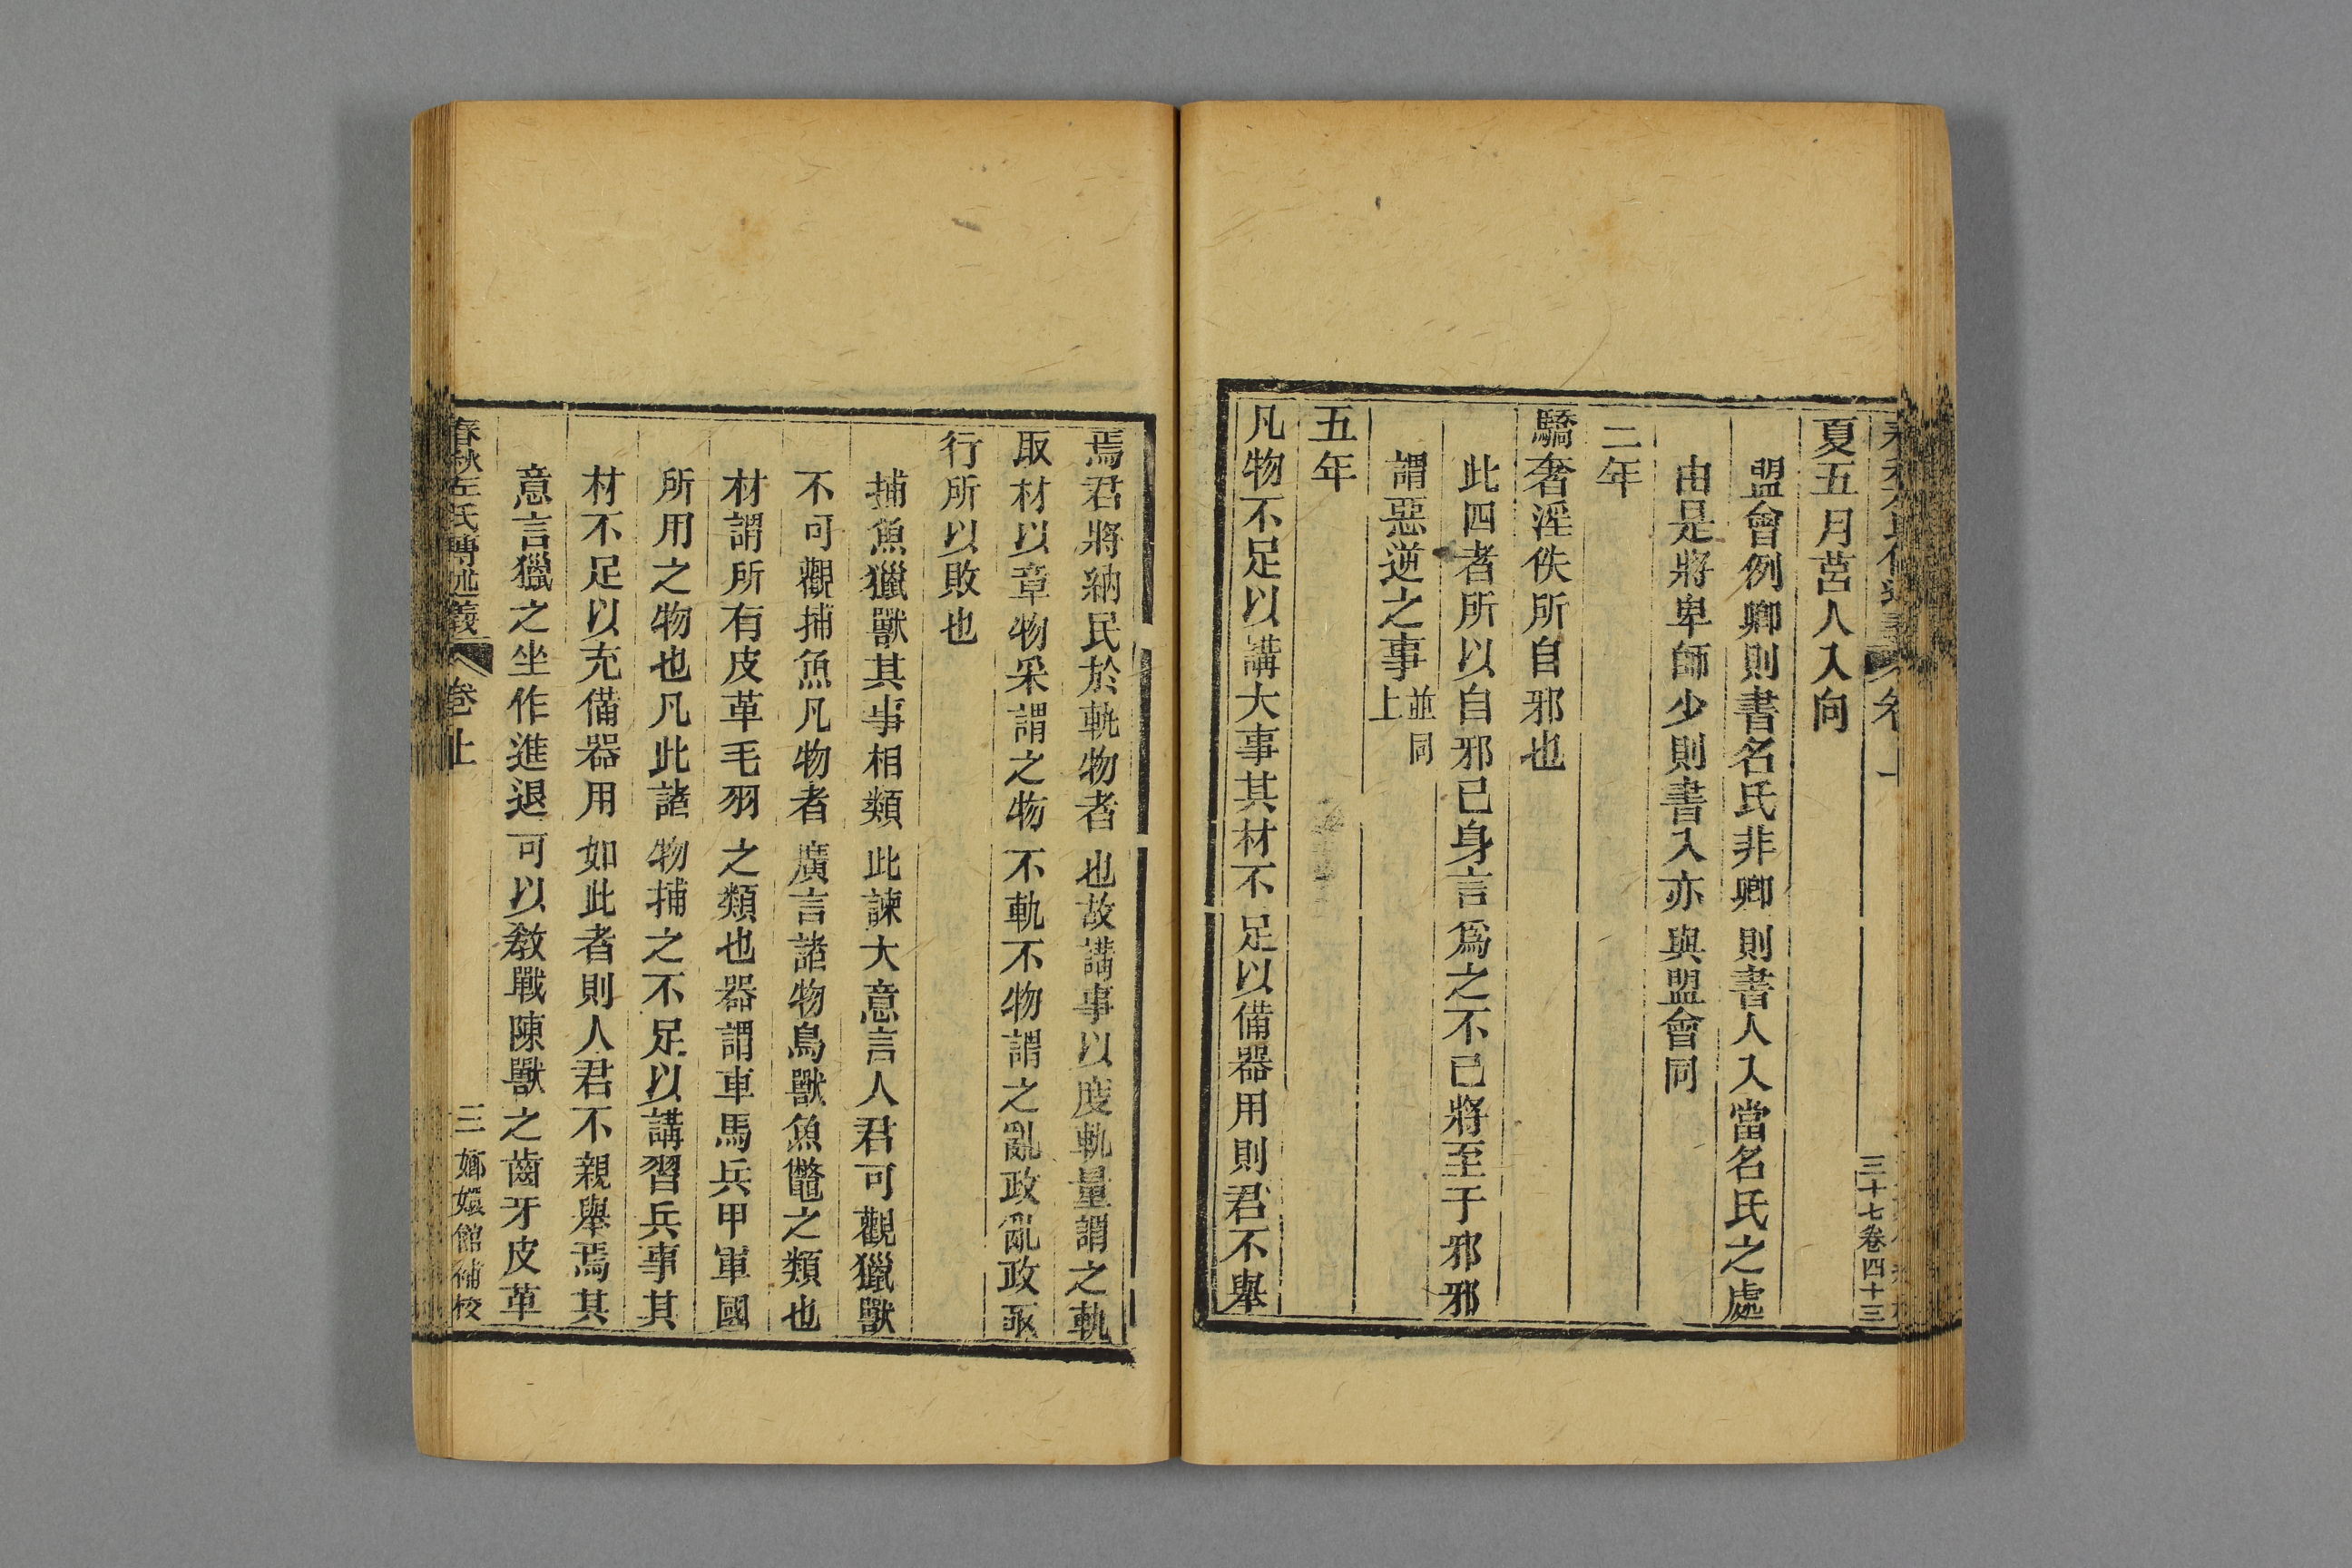 三十七卷四十三
夏五月莒人入向
盟會例卿則書名氏非卿則書人入當名氏之處
由是將卑師少則書入亦與盟會同
二年
驕奢淫佚所自邪也
此四者所以自邪己身言爲之不已將至于邪邪
謂惡逆之事並同上
五年
凡物不足以講大事其材不足以備器用則君不舉
焉君將納民於軌物者也故講事以度軌量謂之軌
取材以章物采謂之物不軌不物謂之亂政亂政亟
行所以敗也
捕魚獵獸其事相類此諫大意言人君可觀獵獸
不可觀捕魚凡物者廣言諸物鳥獸魚鼈之類也
材謂所有皮革毛羽之類也器謂車馬兵甲軍國
所用之物也凡此諸物捕之不足以講習兵事其
材不足以充備器用如此者則人君不親舉焉其
意言獵之坐作進退可以敎戰陳獸之齒牙皮革
春秋左氏傳述義 卷上 三 嫏嬛館補校